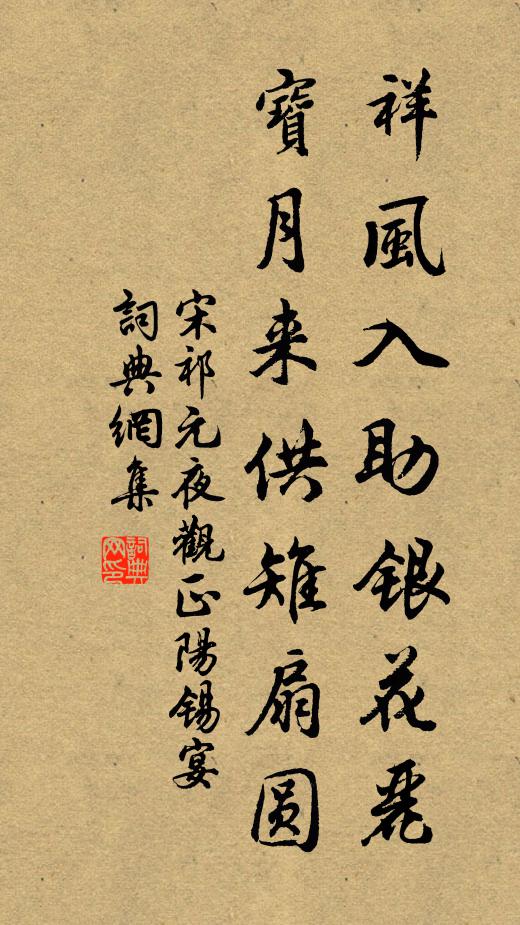 祥風入助銀花麗
寶月来供雉扇圆
宋祁元夜觀正陽錫宴
詞典網集
詞典网印